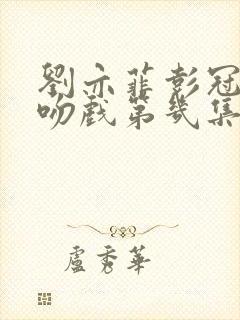 劉亦菲彭冠
吻戲第幾集
盧秀華